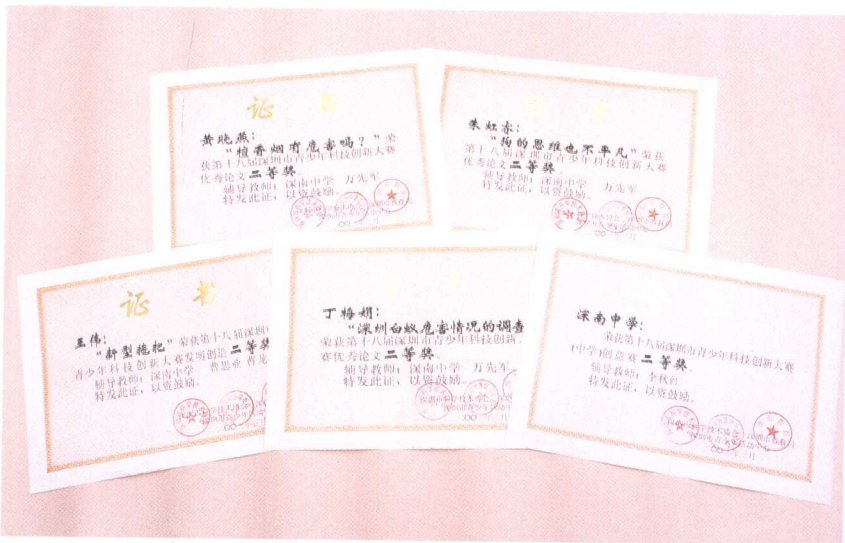 证书
黄晓燕：
“檀香烟有危害吗？”荣
获第十八届深圳市青少年科技创新大赛
优秀论文二等奖。
辅导教师：深南中学 万先军
特发此证，以资鼓励。
朱红春：
“狗的思维也不平凡”荣获
第十八届深圳市青少年科技创新大赛
优秀论文二等奖。
辅导教师：深南中学 万先军
特发此证，以资鼓励。
证书
王伟：
“新型拖把”荣获第十八届深圳市
青少年科技创新大赛发明创造二等奖
辅导教师：深南中学 曹思亚 曹龙
特发此证，以资鼓励。
丁梅娟：
“深圳白蚁危害情况的调查
荣获第十八届深圳市青少年科技创新
赛优秀论文二等奖。
辅导教师：深南中学 万先军
特发此证，以资鼓励。
深南中学：
荣获第十八届深圳市青少年科技创新大赛
(中学)创意赛二等奖。
辅导教师：李秋红
特发此证，以资鼓励。